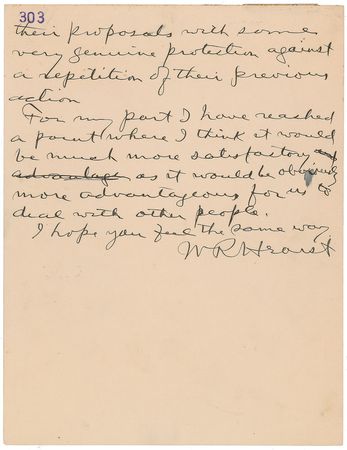 303
their proposals with some
very genuine protection against
a repetition of their previous
action
For my part I have reached
a point where I think it would
be much more satisfactory and
advantage as it would be obviously
more advantageous for us to
deal with other people.
I hope you feel the same way
W R Hearst